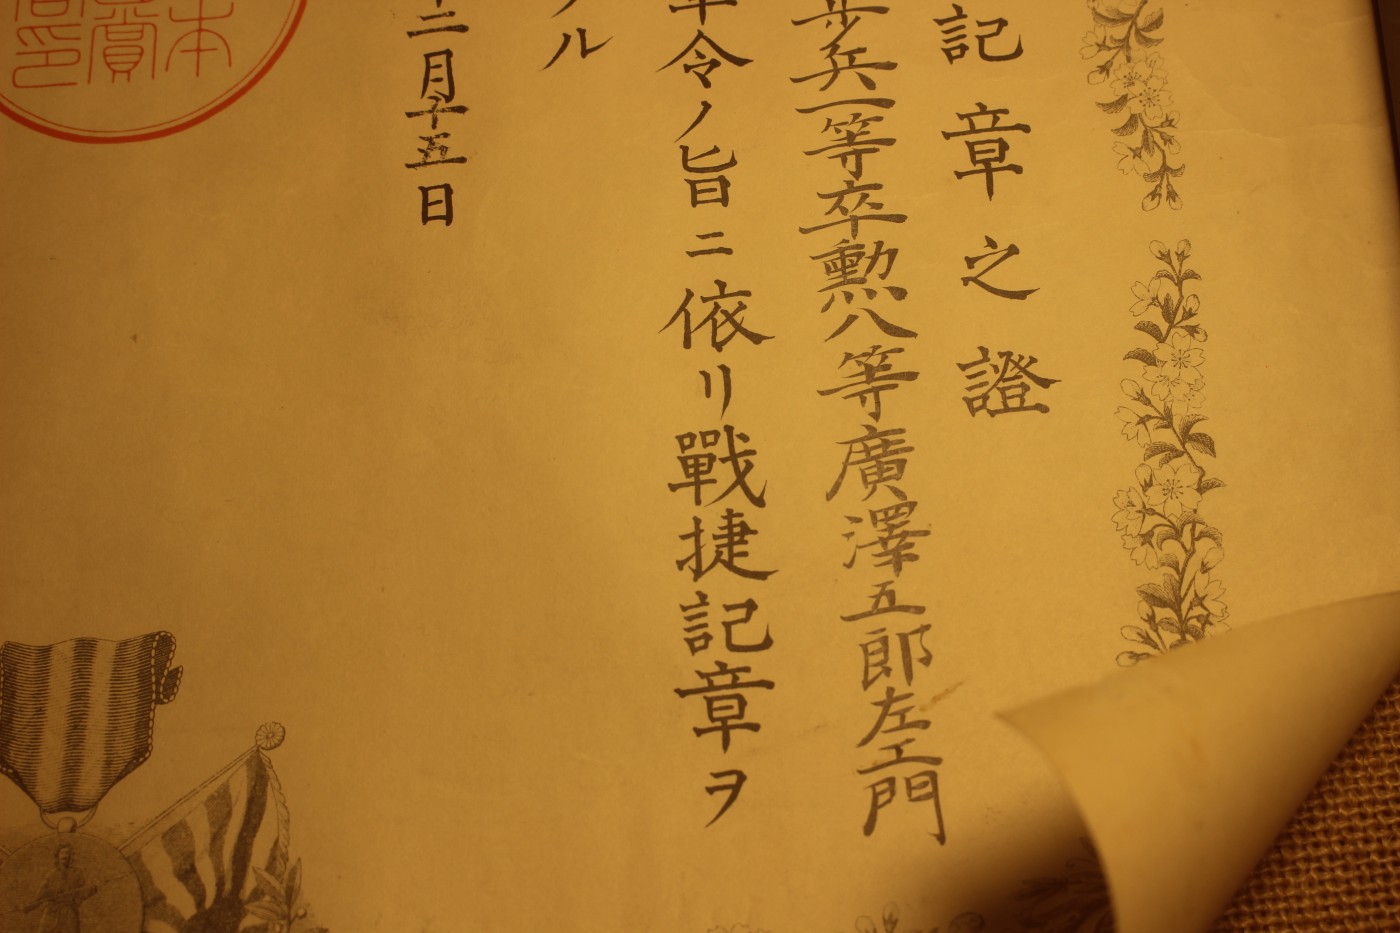 記章之證
歩兵一等卒勲八等廣澤五郎左エ門
令ノ旨ニ依リ戰捷記章ヲ
ル
二月十五日
本
賞
印